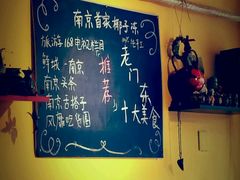 南京首家椰子冻
旅游168电视栏目
鲜城-南京
南京头条
南京吉搭子
风靡吃货圈
推荐
老门东
十大美食